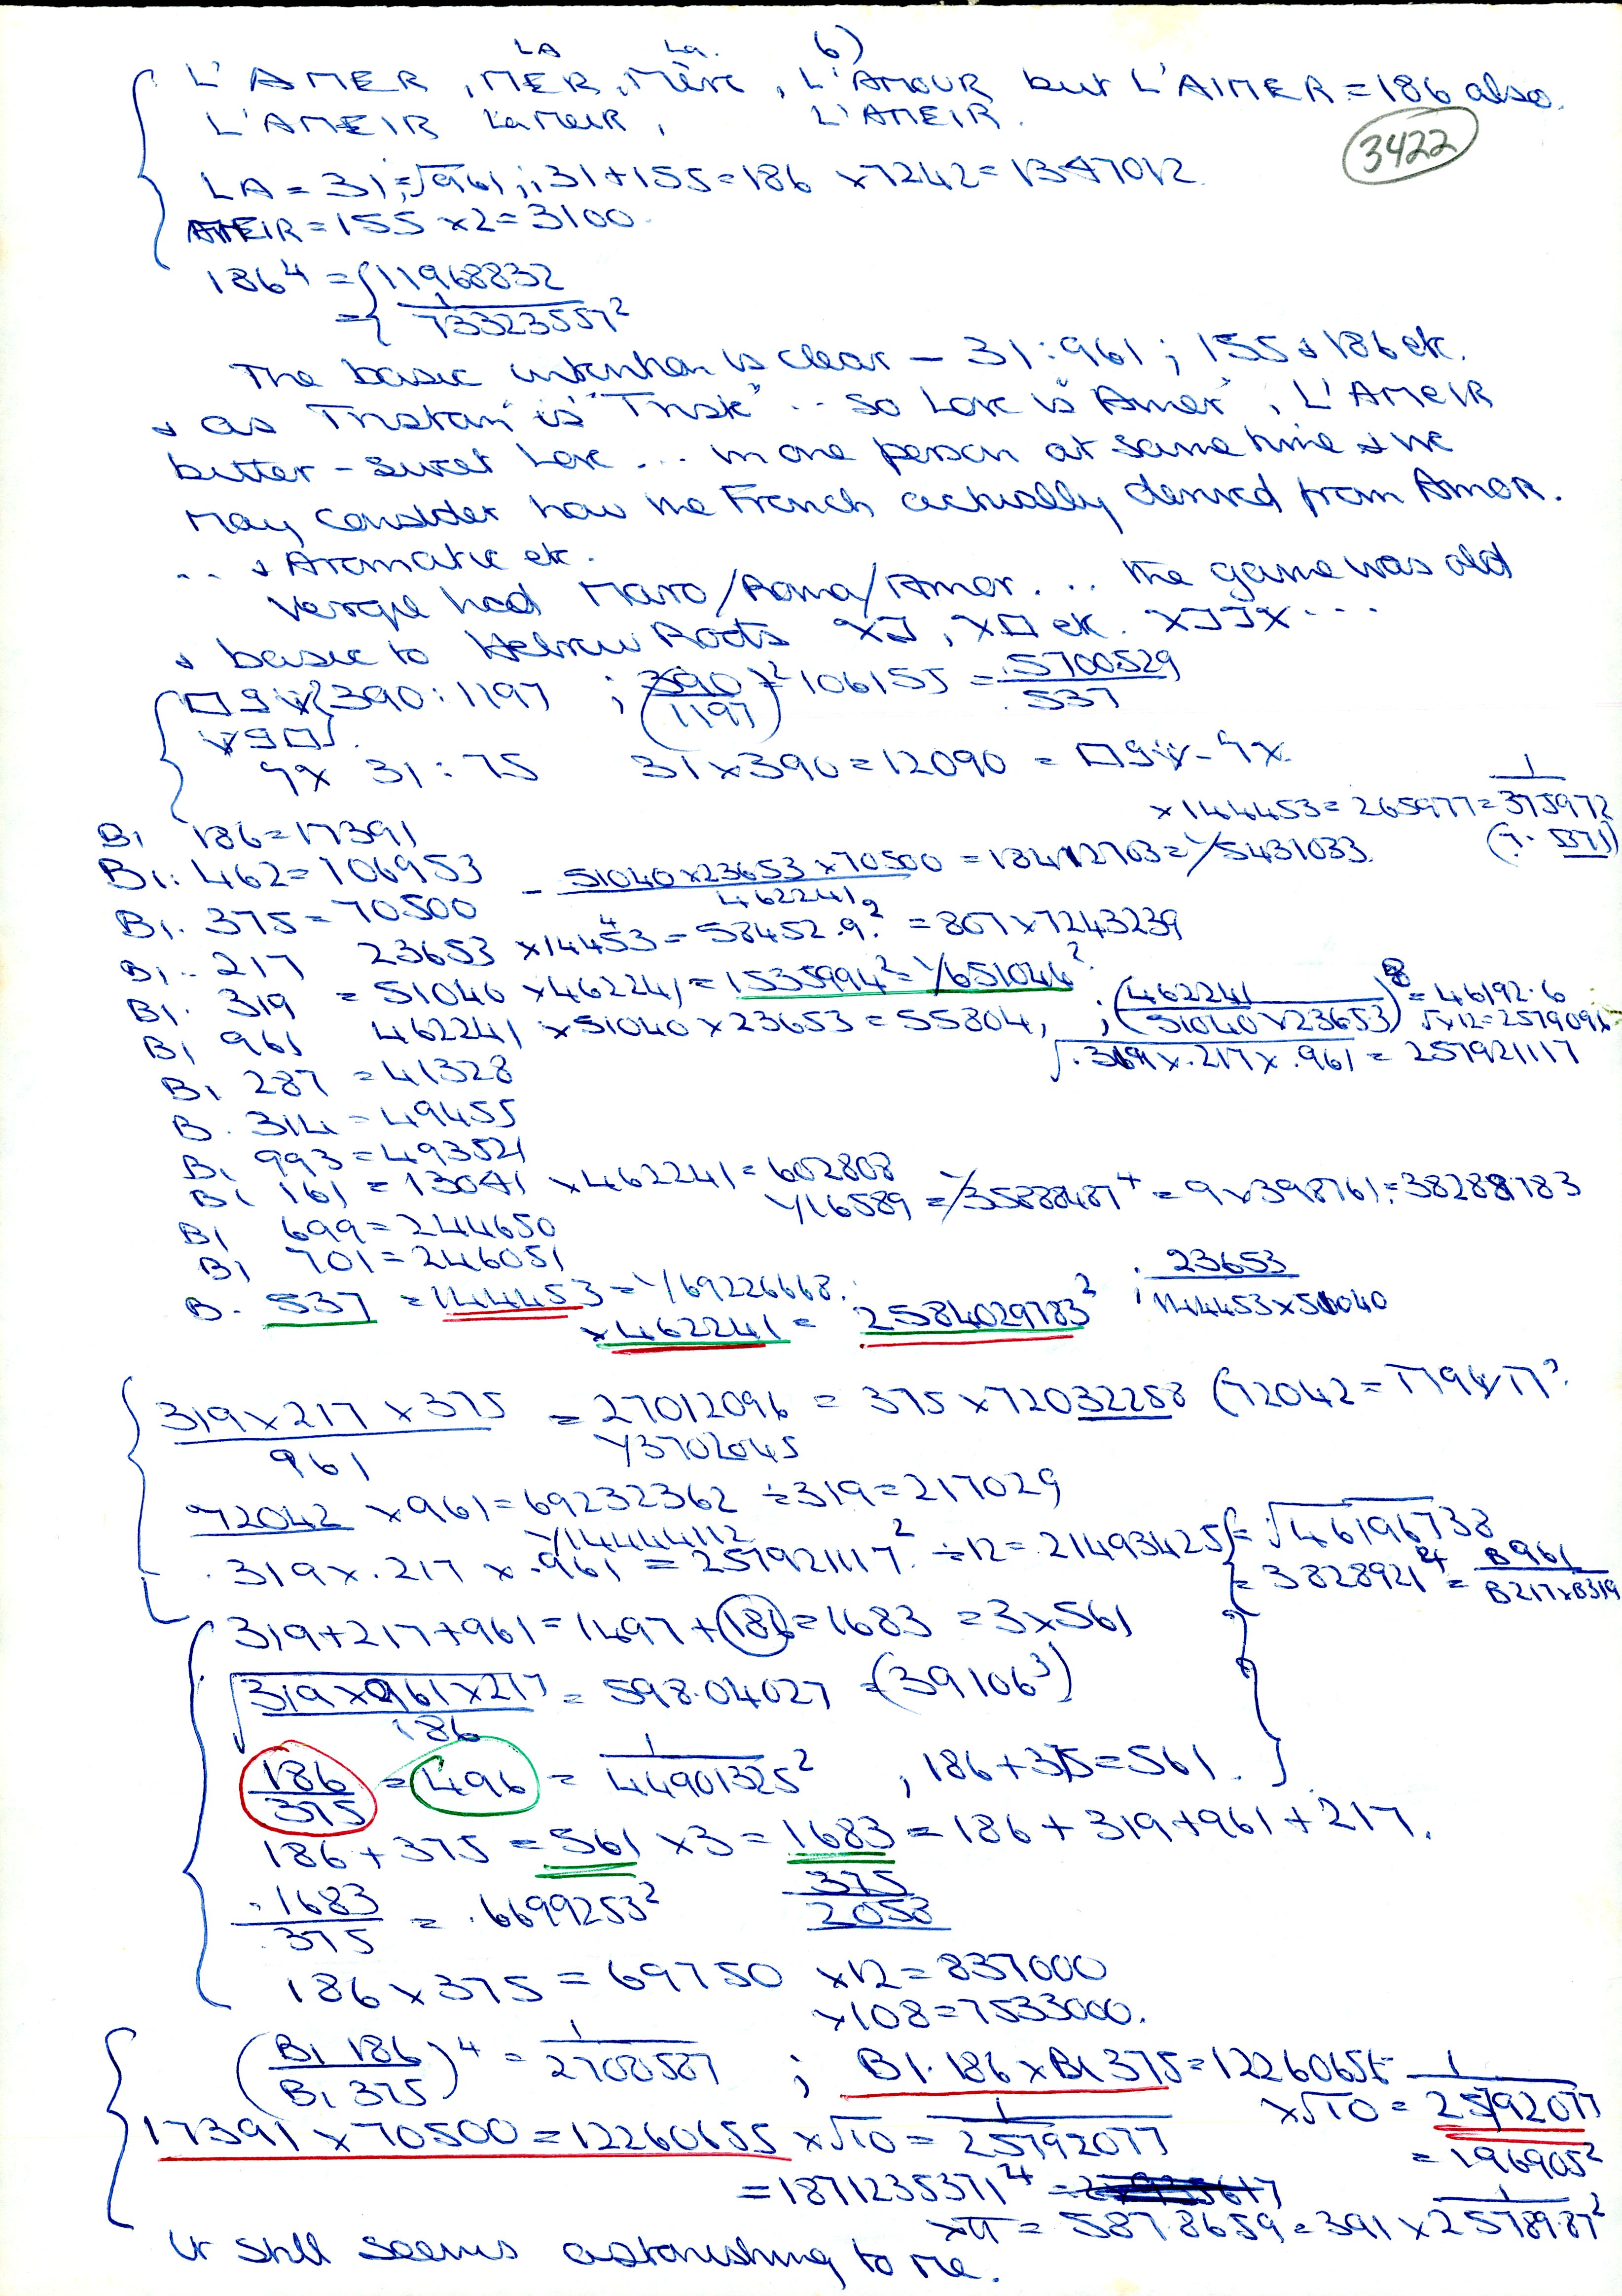 6)
LA La.
L'AMER, MER, Mère, L'AMOUR but L'AIMER = 186 also.
L'AMEIR La Meir, L'AMEIR.
3422
LA = 31 = √961; 31+155 = 186 ×7242 = 1347012
AMEIR = 155 ×2 = 3100
186⁴ = 11968832
= 1/73323557²
The basic intention is clear – 31:961; 155 & 186 etc.
& as Tristan is "Triste" .. so Love is "Amer", L'AMEIR
bitter-sweet Love ... in one person at same time & we
May consider how the French actually derived from Amor.
... & Aromatic etc.
Vergil had Maro/Roma/Amor... the game was old
& basic to Hebrew Roots
390:1197 ; (390/1197)² 106155 = 5700529/537
31:75 31×390 = 12090 =
×144453 = 265977 = 1/375972
B1 186 = 17391
B1: 462 = 106953 = 51040×23653×70500/462241 = 18412703 = 1/5431033.
B1. 375 = 70500
B1.. 217 23653 ×14453 = 58452.9² = 807×7243239
B1. 319 = 51040 ×462241 = 1535994² = 1/651044² ; (462241/51040×23653)⁸ = 46192.6
B1 961 462241 ×51040×23653 = 55804, √×12 = 2579096
√.319×.217×.961 = 257921117
B1 287 = 41328
B. 314 = 49455
B1 993 = 493521
B1 161 = 13041 ×462241 = 602808
1/16589 = 1/35888487⁴ = 9×398761 = 38288783
B1 699 = 244650
B1 701 = 246051
B. 537 = 144453 = 1/69226668.
×462241 = 2584029783² ; 23653/144453×51040
319×217×375/961 = 27012096 = 375×72032258 (72042 =
1/3702045
72042 ×961 = 69232362 ÷319 = 217029
1/14444112
.319×.217×.961 = 257921117² ÷12 = 21493425 = √46196738
= 3828921⁴ = B961/B217×B319
319+217+961 = 1497+186 = 1683 = 3×561
√319×961×217/186 = 598.04027 = (39106³)
186/375 = 496 = 1/44901325² , 186+375 = 561.
186+375 = 561 ×3 = 1683 = 186+319+961+217.
.1683/.375 = .6699253² 375
2058
186×375 = 69750 ×12 = 837000
×108 = 7533000.
(B1 186/B1 375)⁴ = 1/2700587 ; B1.186×B1 375 = 12260655
×√10 = 1/25792077
17391×70500 = 12260655 ×√10 = 1/25792077
= 196905²
= 1871235371⁴
×π = 587.8659 = 391 × 1/2578987²
It still seems astonishing to me.